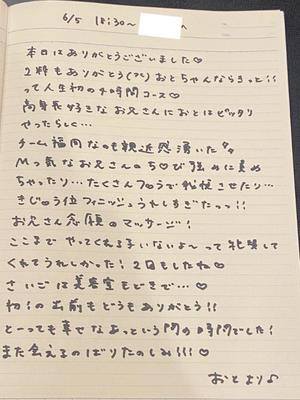 6/5 18:30~
本日はありがとうございました♡
2枠もありがとう(?!)おとちゃんならきっと!!
って人生初の4時間コース♡
高身長好きなお兄さんにおとはピッタリ
やったらしく…
チーム福岡なのも親近感湧いた
Mっ気なお兄さんのち♡び強めに責め
ちゃったり…たくさんフ♡ラで悦させたり…
きじ♡う位フィニッシュうれしすぎたっ!!
お兄さん念願のマッサージ!
ここまでやってくれる子いないよ~って絶賛して
くれてうれしかった!2回もしたね♡
さいごは美容室もどきで…♡
初!の出前もどうもありがとう!!
とーっても幸せであっという間の4時間でした!
また会えるのばりたのしみ!!!♡
おとより♪